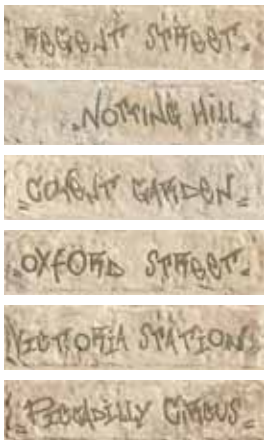 REGENT STREET.
NOTTING HILL
COVENT GARDEN
OXFORD STREET.
VICTORIA STATION
PICCADILLY CIRCUS